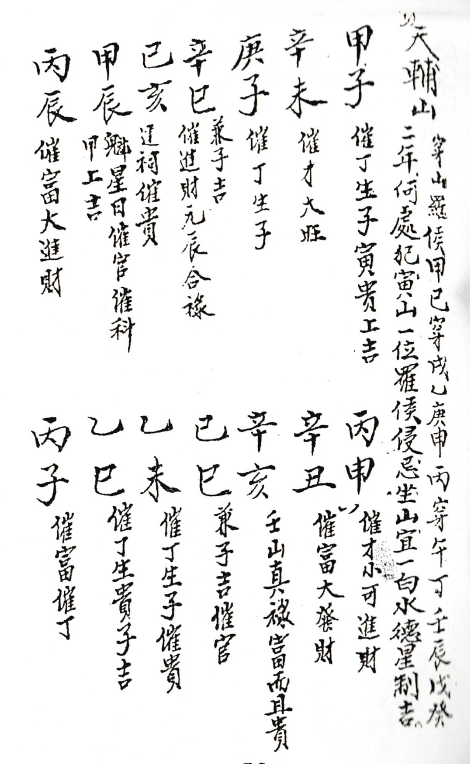 天輔山
穿山羅侯甲己穿戌乙庚申丙穿午丁壬辰戊癸
二年何處犯寅山一位羅侯侵忌坐山宜一白水德星制吉
甲子 催丁生子寅貴上吉
辛未 催才大旺
庚子 催丁生子
辛巳 兼子吉
催進財元辰合祿
己亥 進祠催貴
甲辰 魁星日催官催科
甲上吉
丙辰 催富大進財
丙申 催才小可進財
辛丑 催富大發財
辛亥 壬山真祿富而且貴
己巳 兼子吉催官
乙未 催丁生子催貴
乙巳 催丁生貴子吉
丙子 催富催丁